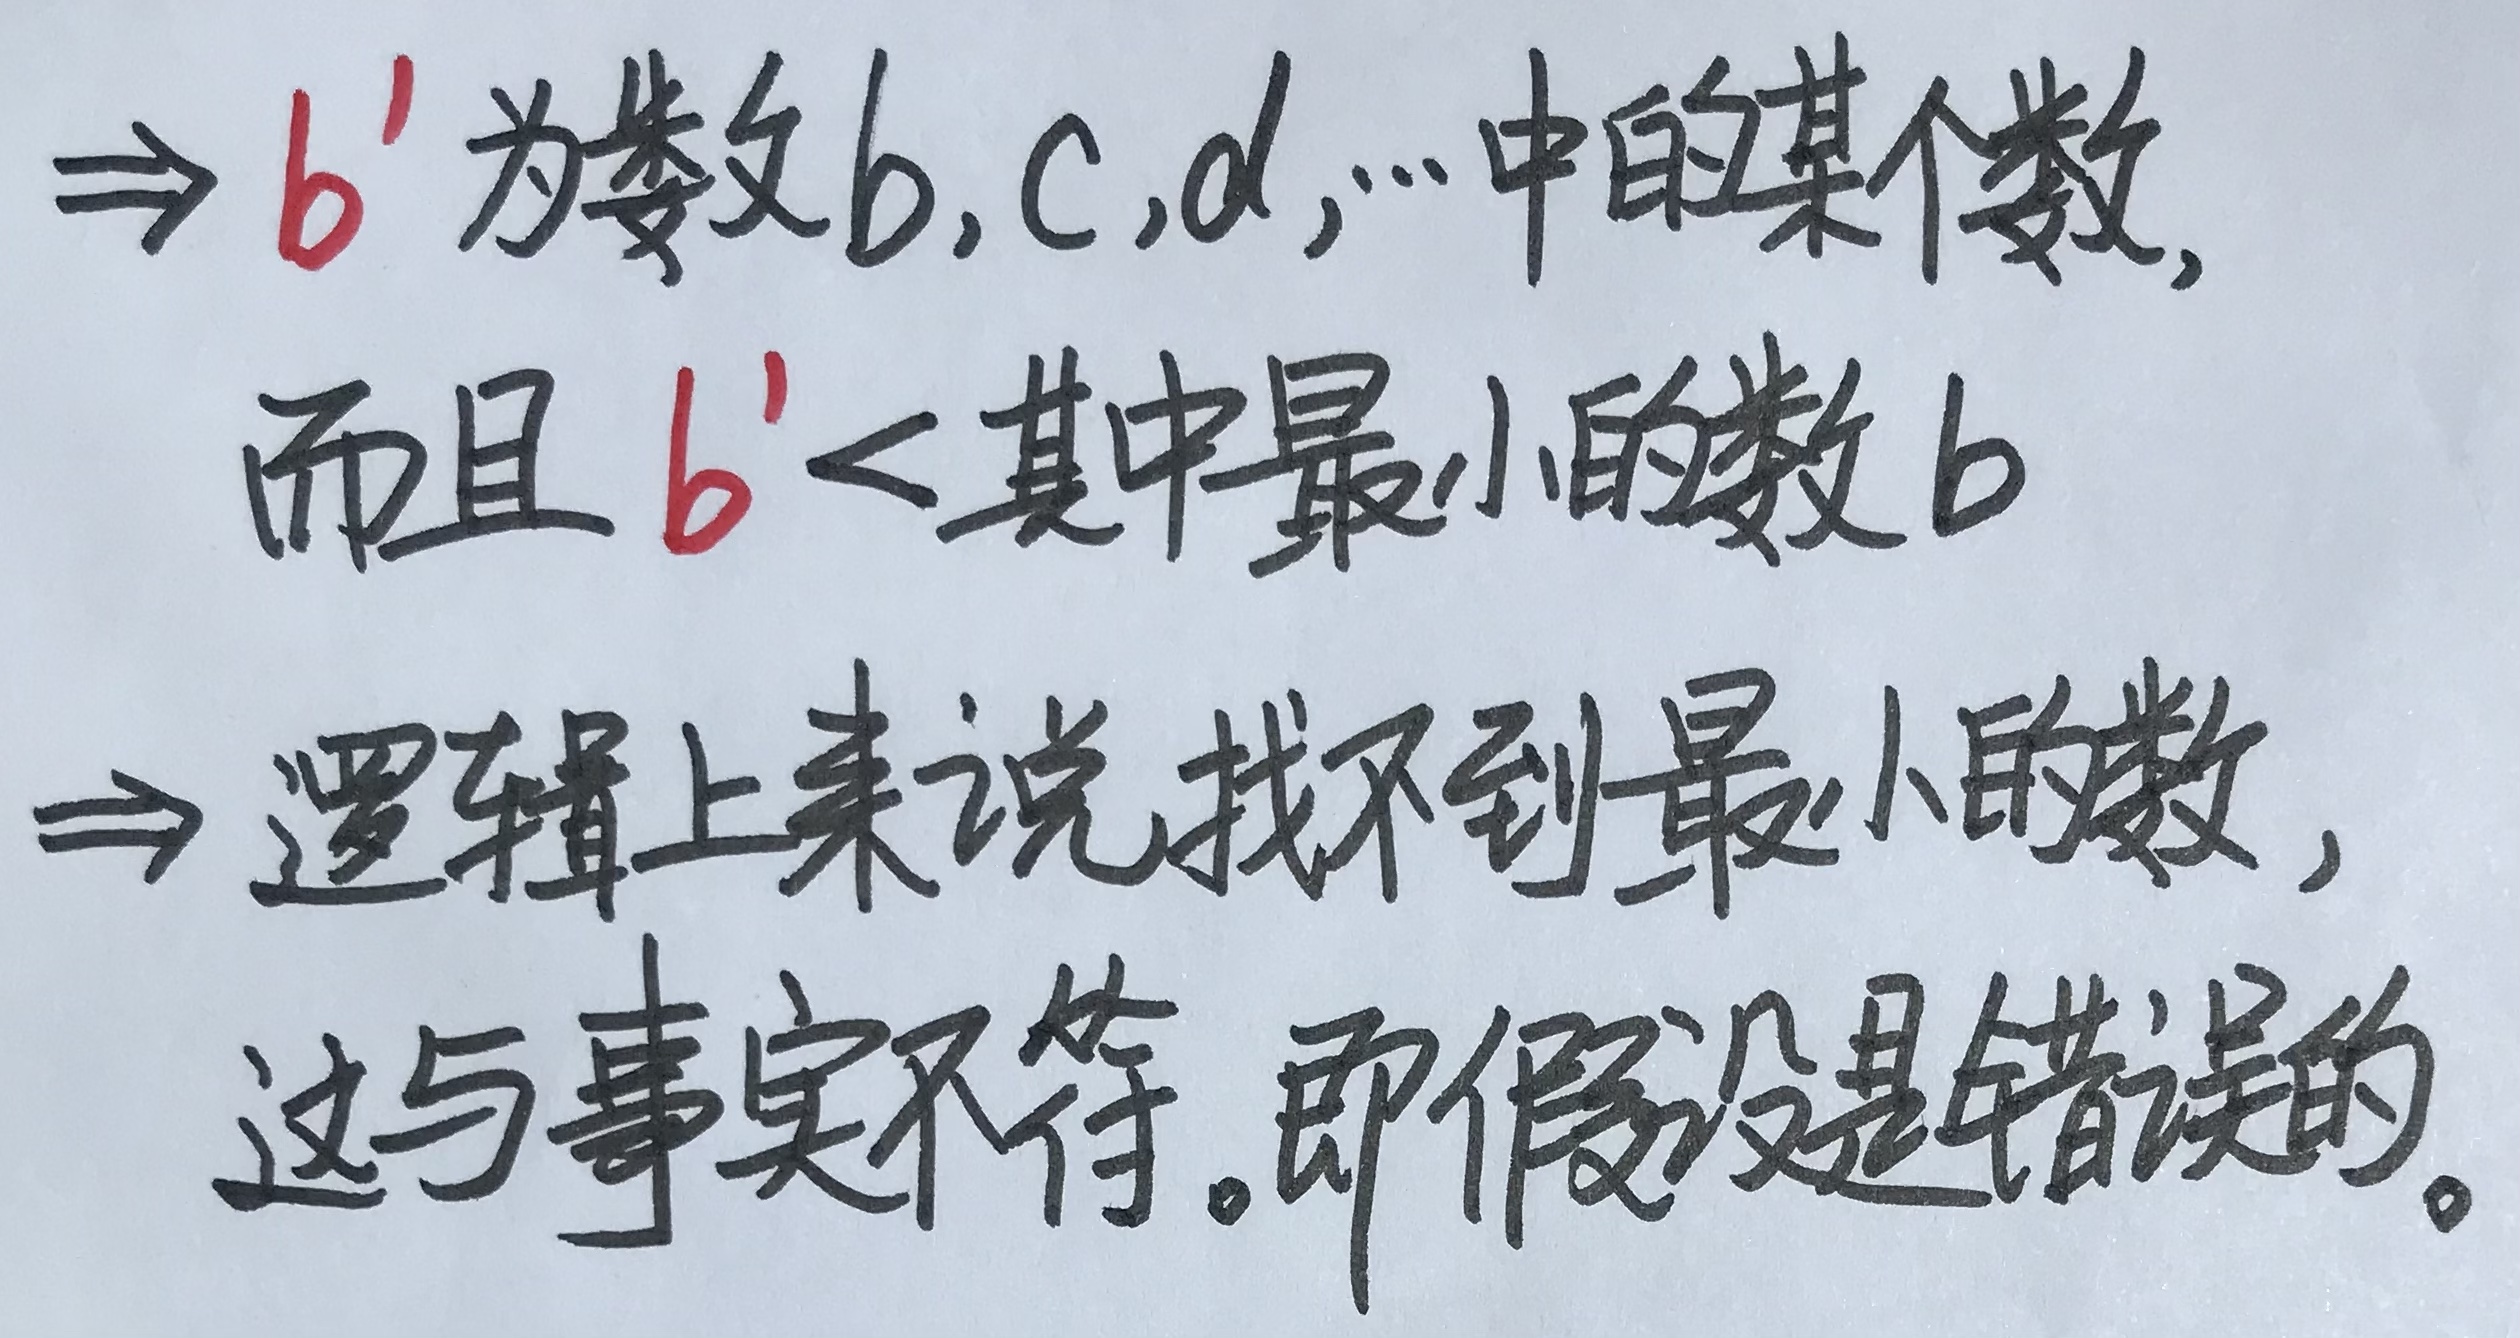 ⇒ b' 为数b, c, d, … 中的某个数,
而且 b' < 其中最小的数 b
⇒ 逻辑上来说,找不到最小的数,
这与事实不符。即假设是错误的。